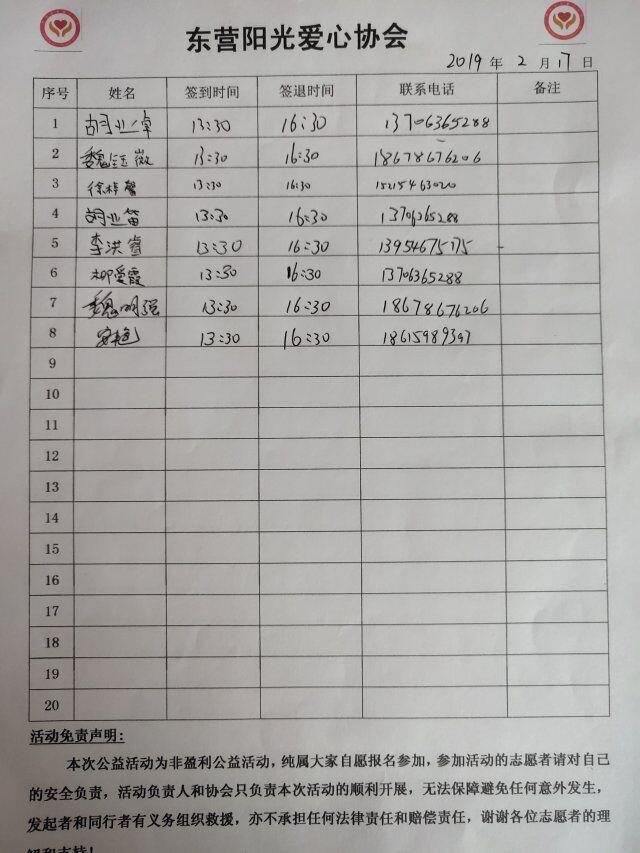 东营阳光爱心协会
2019 年 2 月 17 日
序号 姓名 签到时间 签退时间 联系电话 备注
1 胡业卓 13:30 16:30 13706365288
2 魏钰薇 13:30 16:30 18678676206
3 徐梓馨 13:30 16:30 15215463020
4 胡业笛 13:30 16:30 13706365288
5 李洪睿 13:30 16:30 13954675175
6 柳爱霞 13:30 16:30 13706365288
7 魏明强 13:30 16:30 18678676206
8 13:30 16:30 18615989397
9
10
11
12
13
14
15
16
17
18
19
20
活动免责声明:
本次公益活动为非盈利公益活动，纯属大家自愿报名参加，参加活动的志愿者请对自己
的安全负责，活动负责人和协会只负责本次活动的顺利开展，无法保障避免任何意外发生，
发起者和同行者有义务组织救援，亦不承担任何法律责任和赔偿责任，谢谢各位志愿者的理
解和支持！